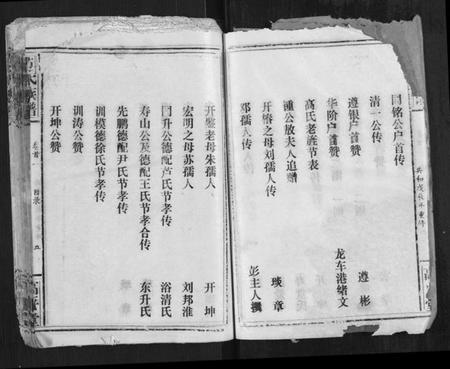 共和戊辰年重修
国铭公户首传
清一公传 遵彬
遵银户首赞
华阶户首赞 龙车港绪文
高氏老旌节表
遵公放夫人追赠
开椿之母刘孺人传 琰章
邓孺人传 彭主人撰
开鏊老母朱孺人 开坤
宏明之母苏孺人 刘邦淮
国升公德配芦氏节孝传 浴清氏
寿山公及德配王氏节孝合传 东升氏
先鹏德配尹氏节孝传
训模德配徐氏节孝传
训涛公赞
开坤公赞
卷首
目录
五